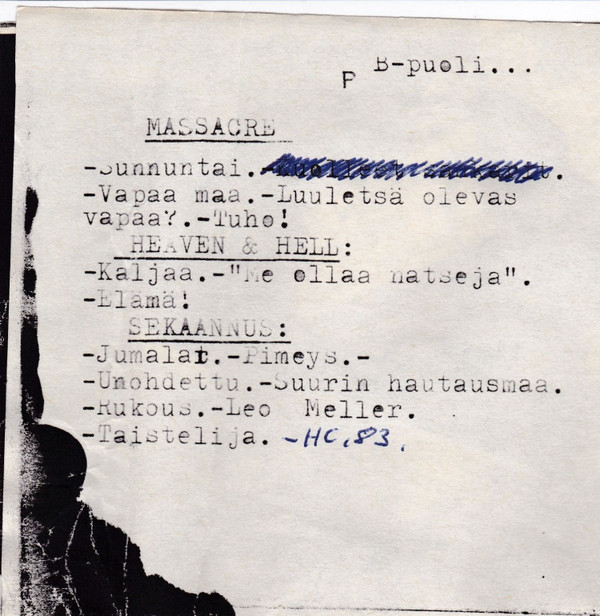 B-puoli...
P
MASSACRE
-Sunnuntai.
-Vapaa maa.-Luuletsä olevas
vapaa?.-Tuho!
HEAVEN & HELL:
-Kaljaa.-"Me ollaa natseja".
-Elämä!
SEKAANNUS:
-Jumalat.-Pimeys.-
-Unohdettu.-Suurin hautausmaa.
-Rukous.-Leo Meller.
-Taistelija. -HC,83,